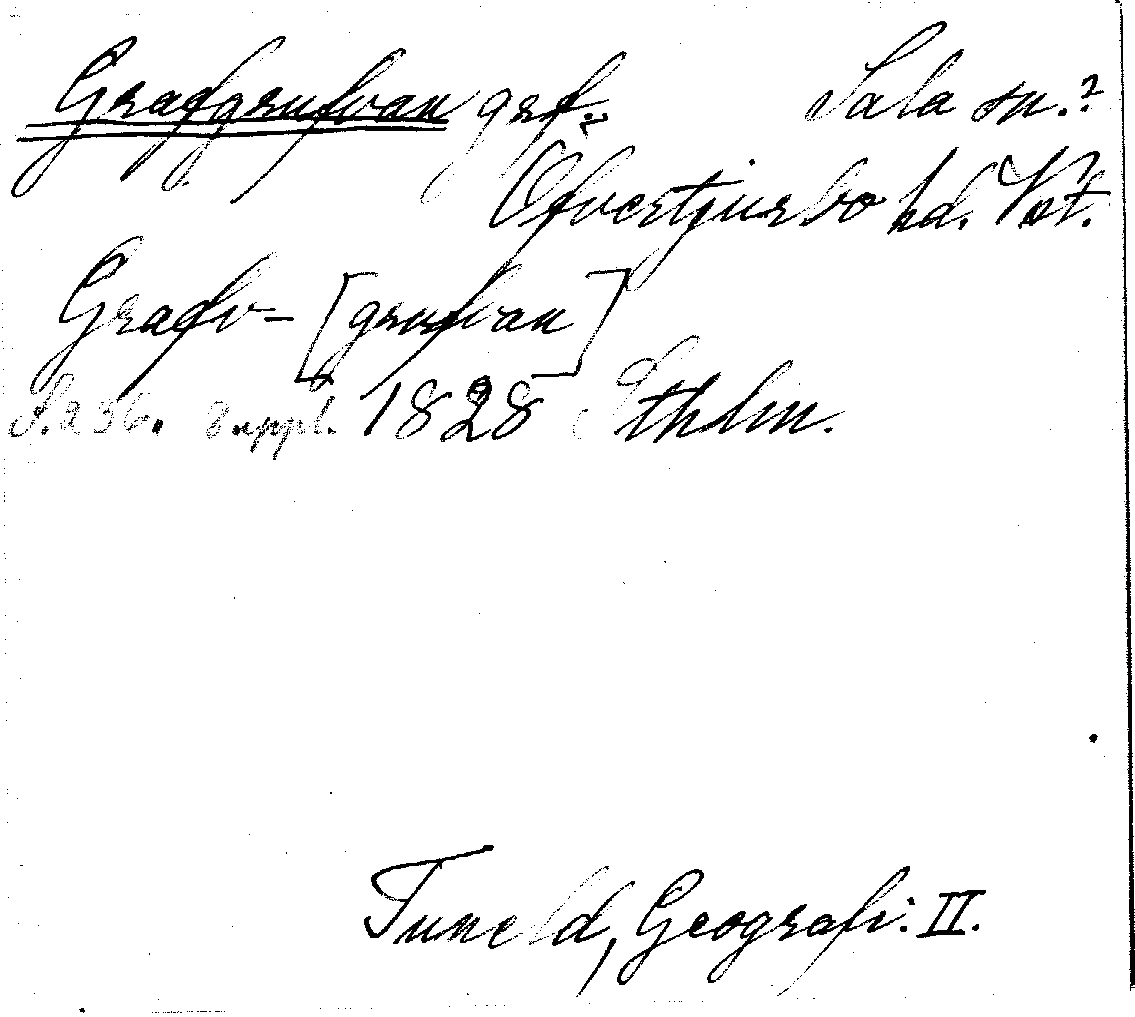 Grafgrufvan grf. Sala sn.?
Öfvertjurbo hd. Vst.
Grafv- [grufvan]
S. 236. Suppl. 1828 Sthlm.
Tuneld, Geografi. II.